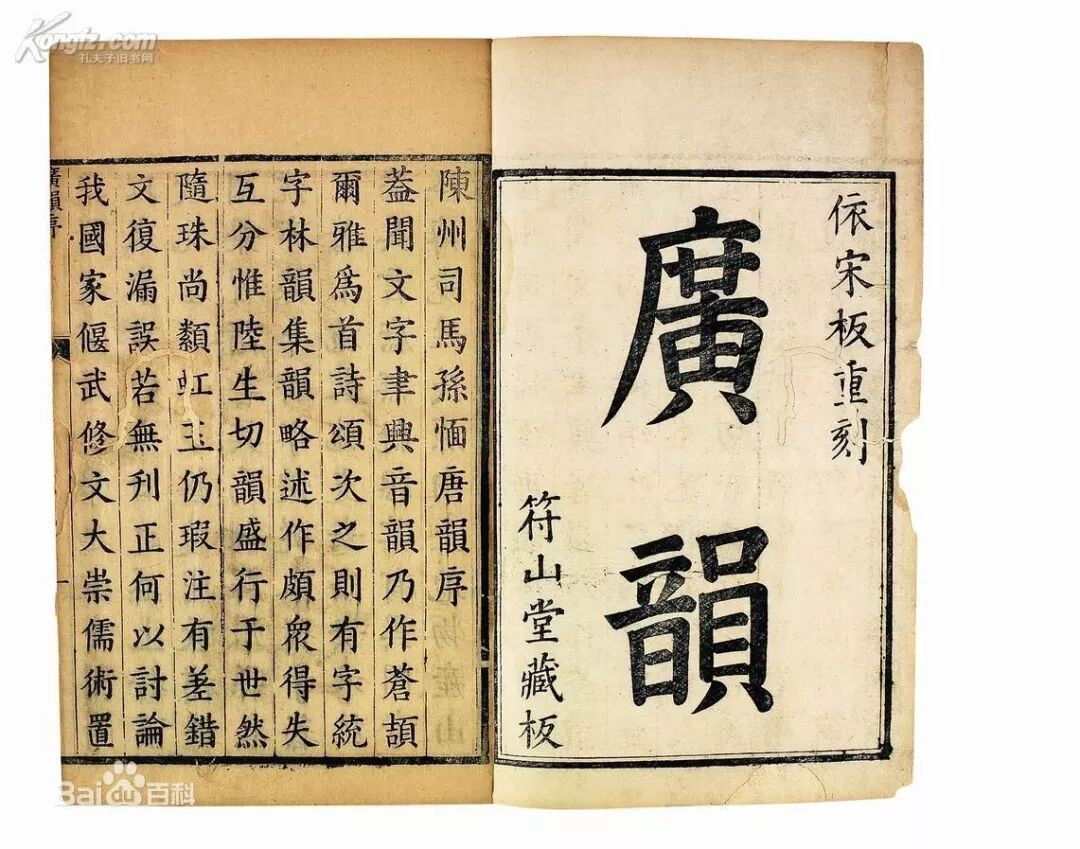 依宋板重刻
廣韻
符山堂藏板
陳州司馬孫愐唐韻序
葢聞文字聿興音韻乃作蒼頡
爾雅爲首詩頌次之則有字統
字林韻集韻略述作頗衆得失
互分惟陸生切韻盛行于世然
隨珠尚纇虹玉仍瑕注有差錯
文復漏誤若無刊正何以討論
我國家偃武修文大崇儒術置
廣韻序
Kongfz.com
孔夫子旧书网
Bai du 百科